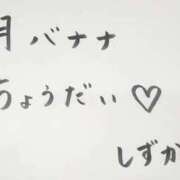 月バナナ
ちょうだい♡
しずか